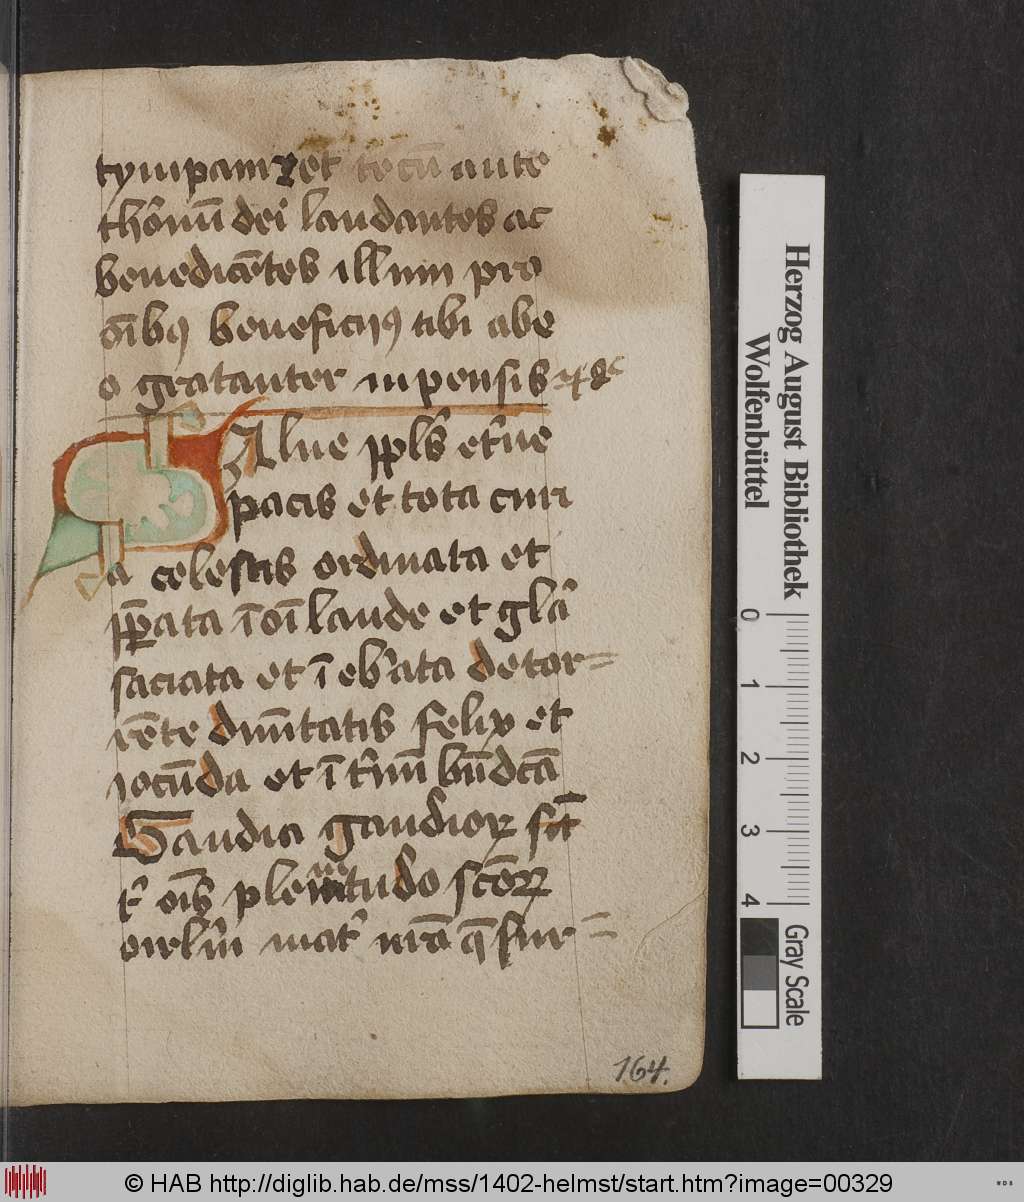 tympanis et tecū ante
thronū dei laudantes ac
benedicētes illum pro
oībꝰ beneficijs tibi abe
o gratanter inpensis
Alue ppl's et'ne
pacis et tota curi
a celestis ordinata et
ꝑata ī oī laude et gl'a
saciata et ī eb'ata de tor=
rēte diuītatis felix et
iocūda et ī t'nū bn̄dcā
Gaudia gaudioꝝ sūt
t' oīb plenitudo scōꝝ
o irl'm mat' nrā q̄ sur=
164.
Herzog August Bibliothek
Wolfenbüttel
0 1 2 3 4
Gray Scale
© HAB http://diglib.hab.de/mss/1402-helmst/start.htm?image=00329